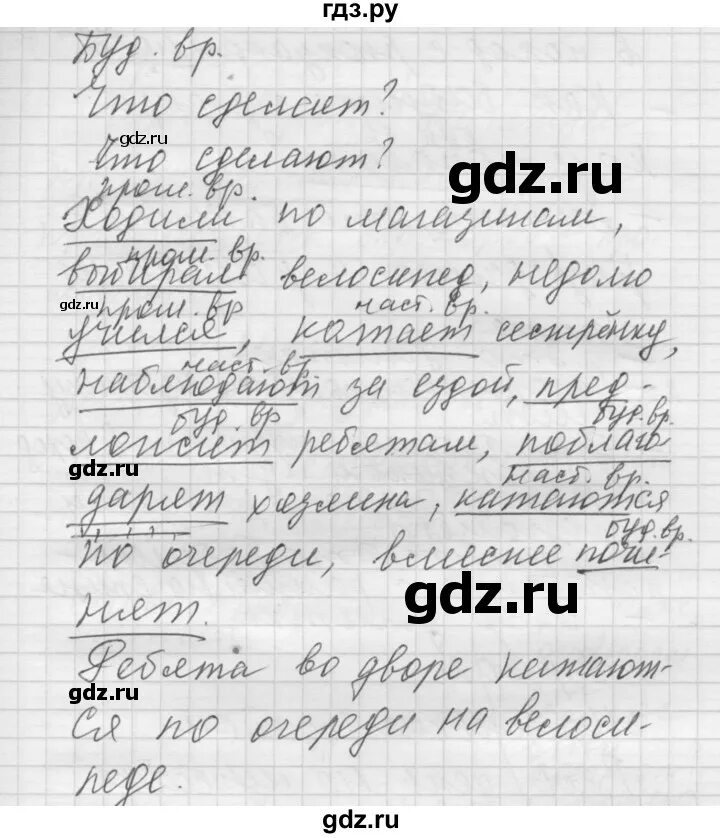 гдз.ру
Буд. вр.
Что сделает?
gdz.ru
Что сделают?
gdz.ru
прош. вр.
Ходили по магазинам,
прош. вр.
выбирал велосипед, неделю
gdz.ru
прош. вр наст. вр.
учился, катает сестрёнку,
наст. вр
наблюдают за ездой, пред-
буд. вр буд. вр.
ложит ребятам, поблаго
gdz.ru
наст. вр.
дарят хозяина, катаются
gdz.ru
буд. вр.
по очереди,
gdz.ru
нят.
gdz.ru
Ребята во дворе катают-
gdz.ru
ся по очереди на велоси-
педе.
gdz.ru
gdz.ru